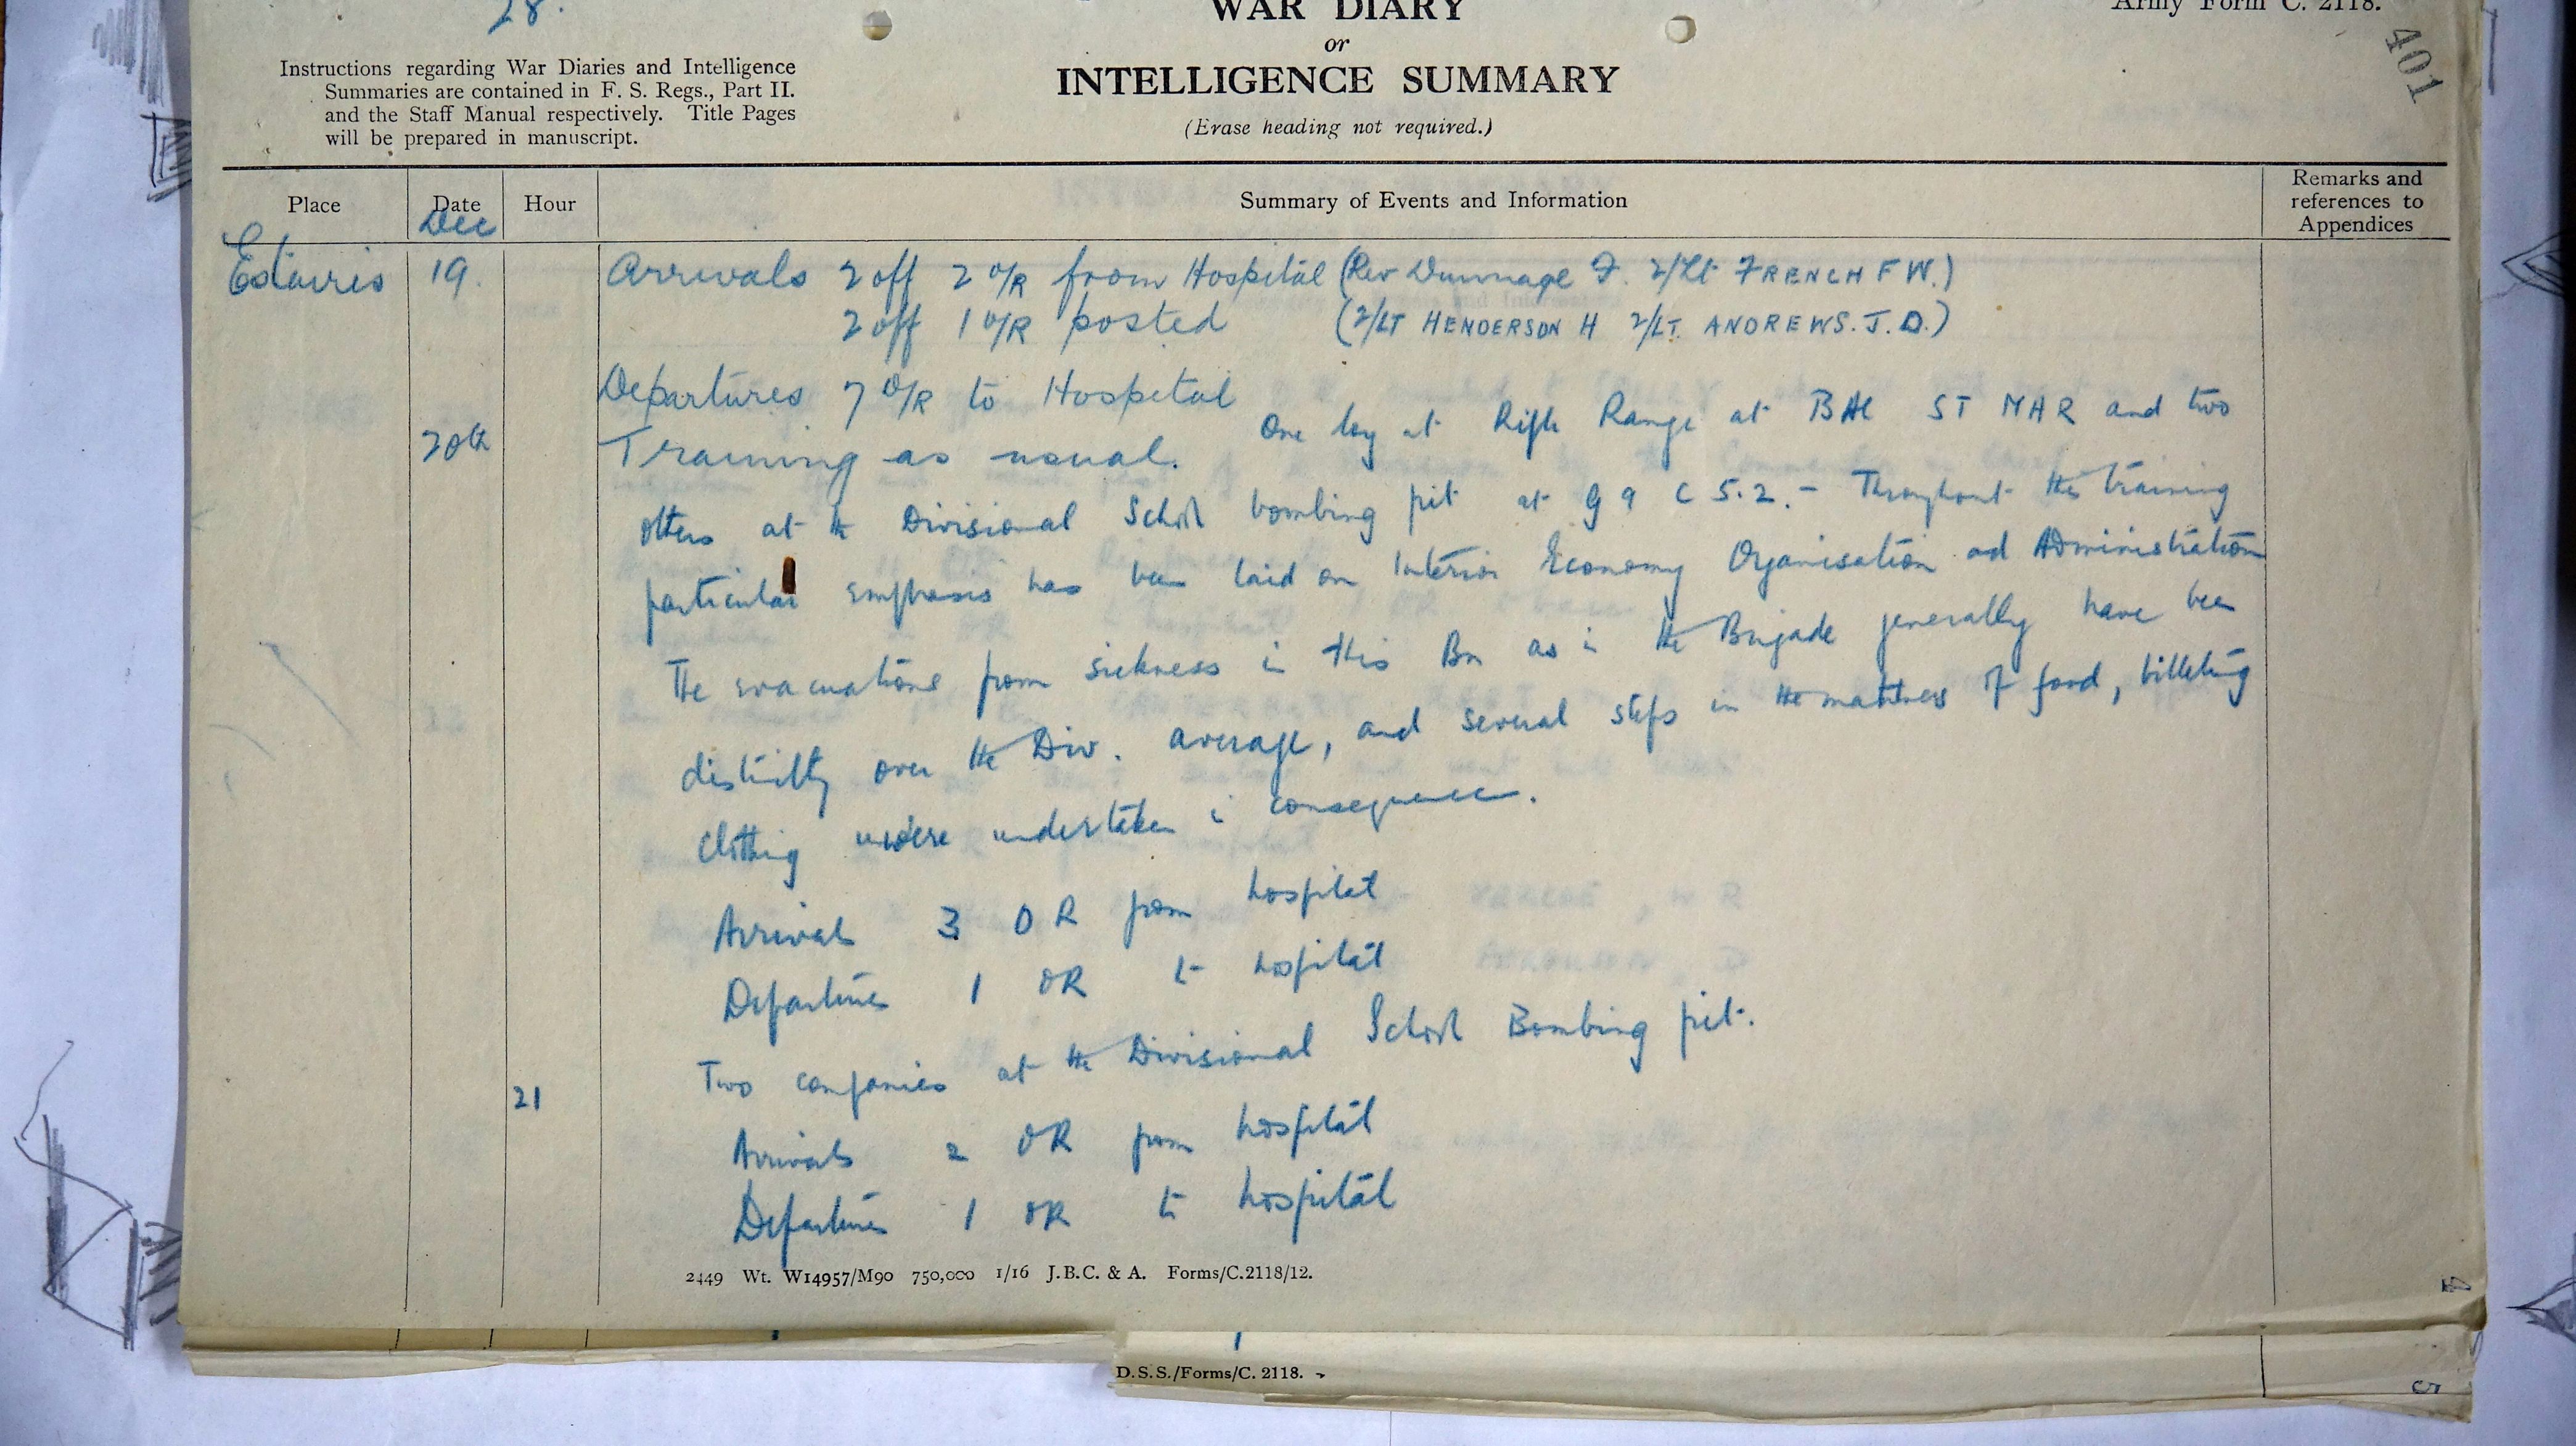 28.
WAR DIARY
Army Form C. 2118.
or
INTELLIGENCE SUMMARY
(Erase heading not required.)
401
Instructions regarding War Diaries and Intelligence
Summaries are contained in F. S. Regs., Part II.
and the Staff Manual respectively. Title Pages
will be prepared in manuscript.
Place Date Hour Summary of Events and Information Remarks and references to Appendices
Dec
Estairis 19. Arrivals 2 off 2 O/R from Hospital (Rev Dunnage F. 2/Lt FRENCH F W.)
2 off 1 O/R posted (2/LT HENDERSON H 2/LT. ANDREWS. J. D.)
Departures 7 O/R to Hospital
20th Training as usual. One Coy at Rifle Range at BAC ST MAR and two
others at the Divisional School bombing pit at G 9 C 5.2. - Throughout the training
particular emphasis has been laid on Interior Economy Organisation and Administration
The evacuations from sickness in this Bn as in the Brigade generally have been
distinctly over the Div. average, and several steps in the matters of food, billeting
clothing were undertaken in consequence.
Arrivals 3 O R from hospital
Departures 1 OR to hospital
21 Two companies at the Divisional School Bombing pit.
Arrivals 2 OR from hospital
Departures 1 OR to hospital
2449 Wt. W14957/M90 750,000 1/16 J.B.C. & A. Forms/C.2118/12.
4
D.S.S./Forms/C. 2118.
5